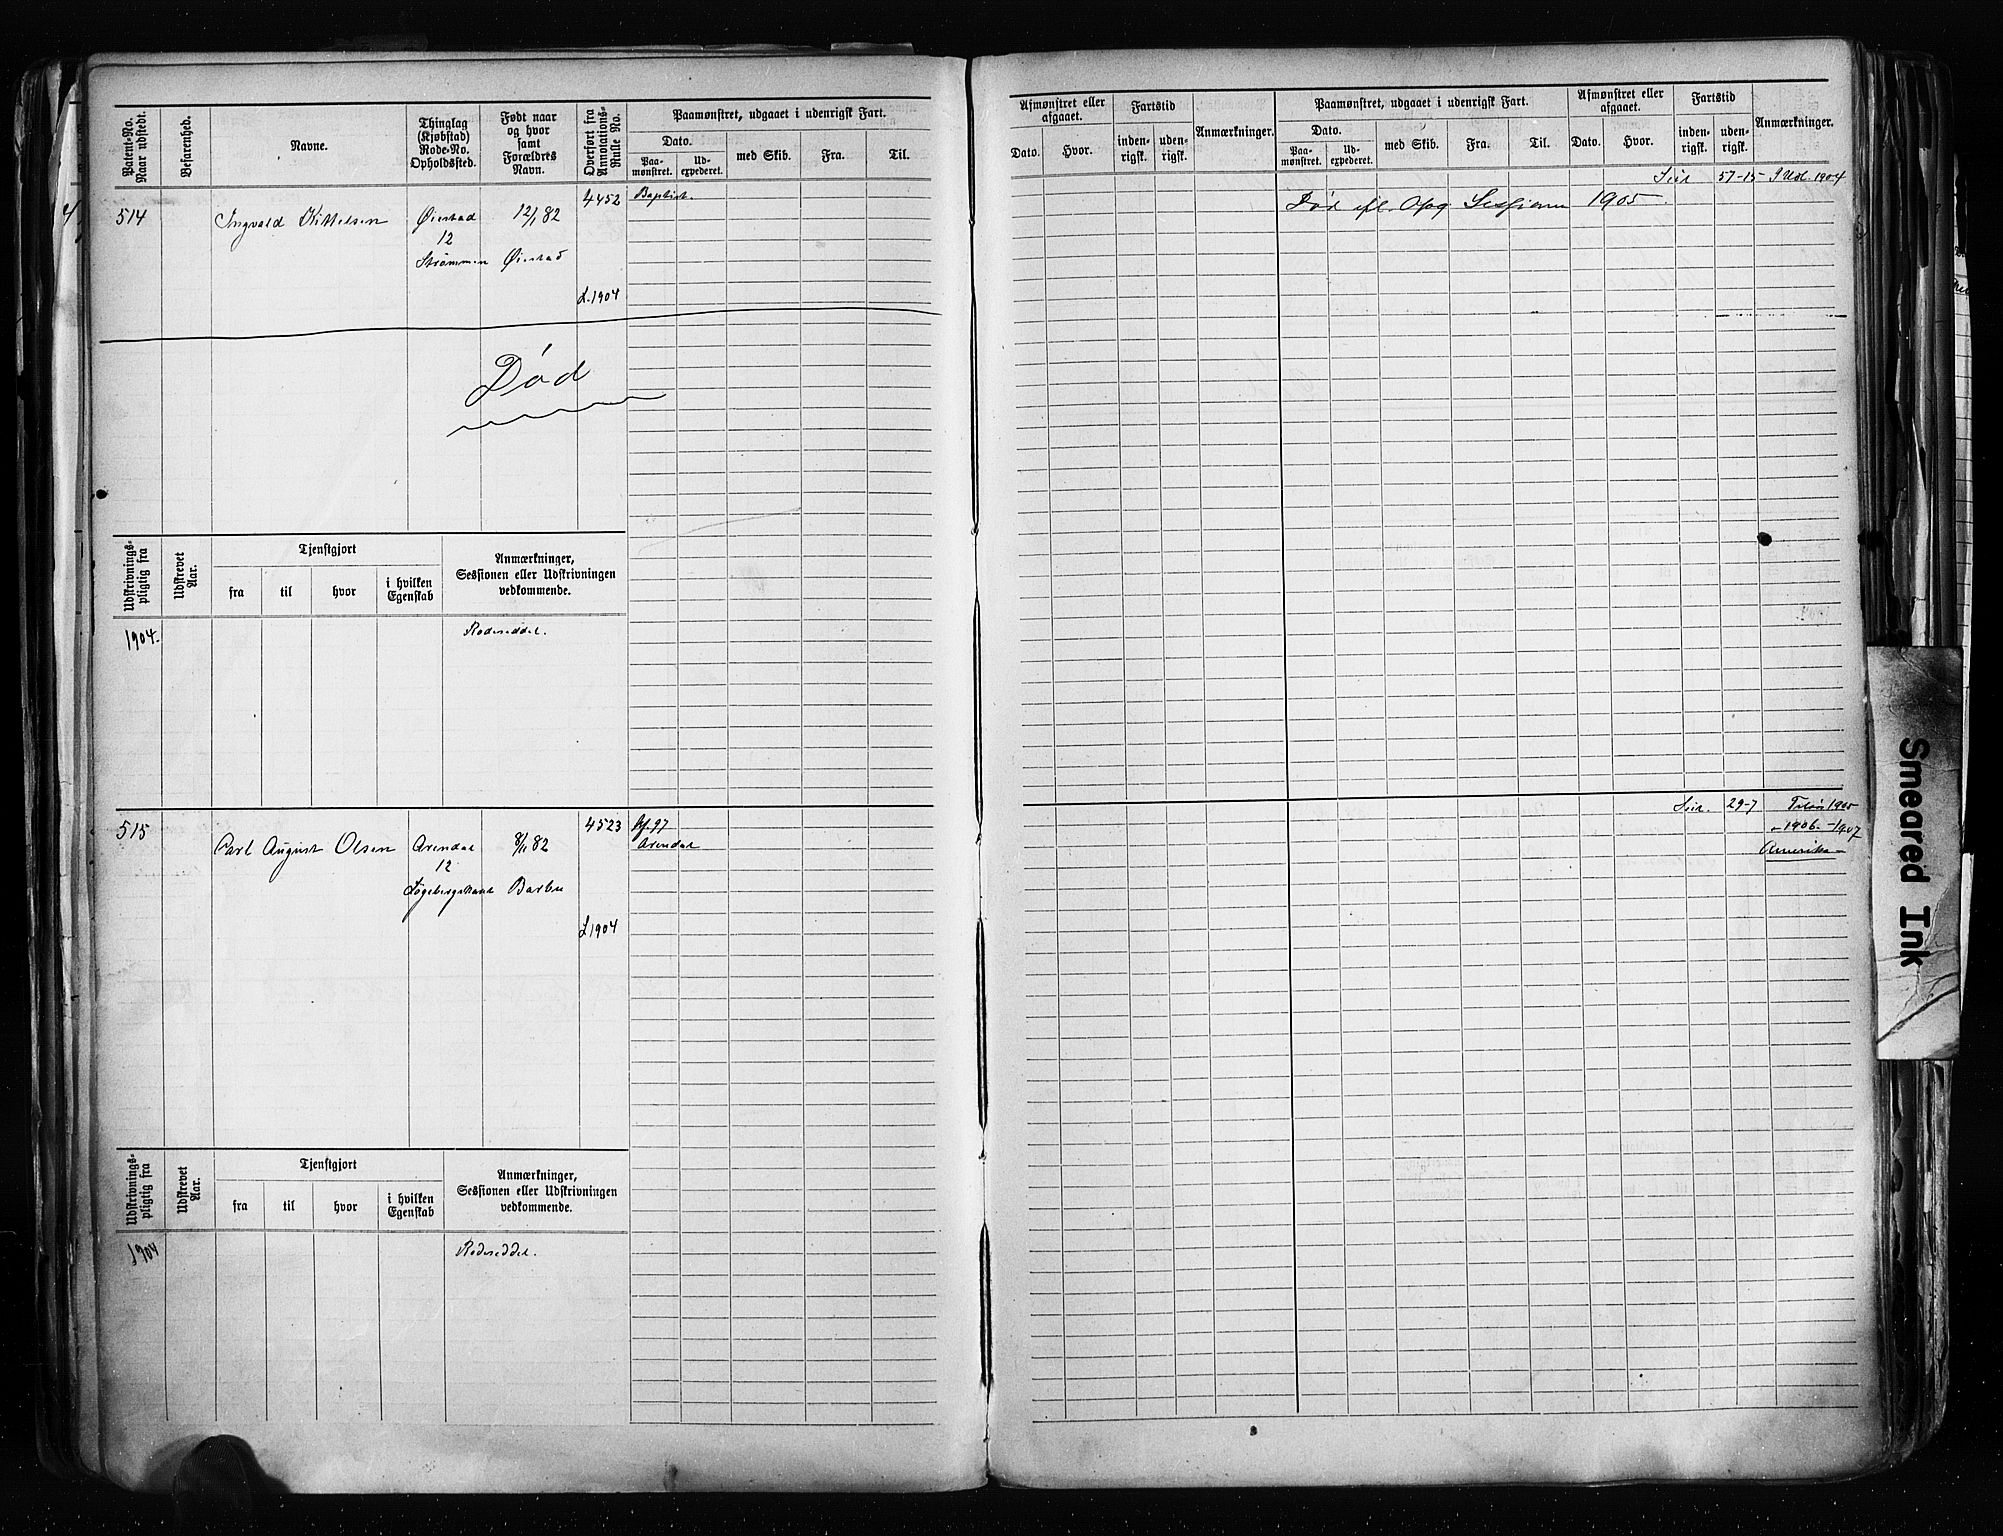 Patent-No. Naar udstedt.
Befarenhed.
Navne.
Thinglag (Kjøbstad) Rode-No. Opholdssted.
Født naar og hvor samt Forældres Navn.
Overført fra Annotations-Rulle No.
Paamønstret, udgaaet i udenrigsk Fart.
Dato.
Paa-mønstret.
Ud-expederet.
med Skib.
Fra.
Til.
514
Ingvald Kittelsen
Øiestad
12
Strømmen
12/1 82
Øiestad
4452
L. 1904
Baptist.
Død
Udskrivnings-pligtig fra
Udskrevet Aar.
Tjenstgjort
fra
til
hvor
i hvilken Egenskab
Anmærkninger,
Sessionen eller Udskrivningen
vedkommende.
1904.
Rodeseddel.
515
Carl August Olsen
Arendal
12
8/1 82
Barbu
4523
L 1904
97
Arendal
Udskrivnings-pligtig fra
Udskrevet Aar.
Tjenstgjort
fra
til
hvor
i hvilken Egenskab
Anmærkninger,
Sessionen eller Udskrivningen
vedkommende.
1904
Rodeseddel.
Afmønstret eller afgaaet.
Dato.
Hvor.
Fartstid
inden-rigsk.
uden-rigsk.
Anmærkninger.
Paamønstret, udgaaet i udenrigsk Fart.
Dato.
Paa-mønstret.
Ud-expederet.
med Skib.
Fra.
Til.
Afmønstret eller afgaaet.
Dato.
Hvor.
Fartstid
inden-rigsk.
uden-rigsk.
Anmærkninger.
57-15 I Udl. 1904
Død efl. Opg Sessionen 1905.
29-7
1905
- 1906 - 1907
Amerika
Smeared Ink